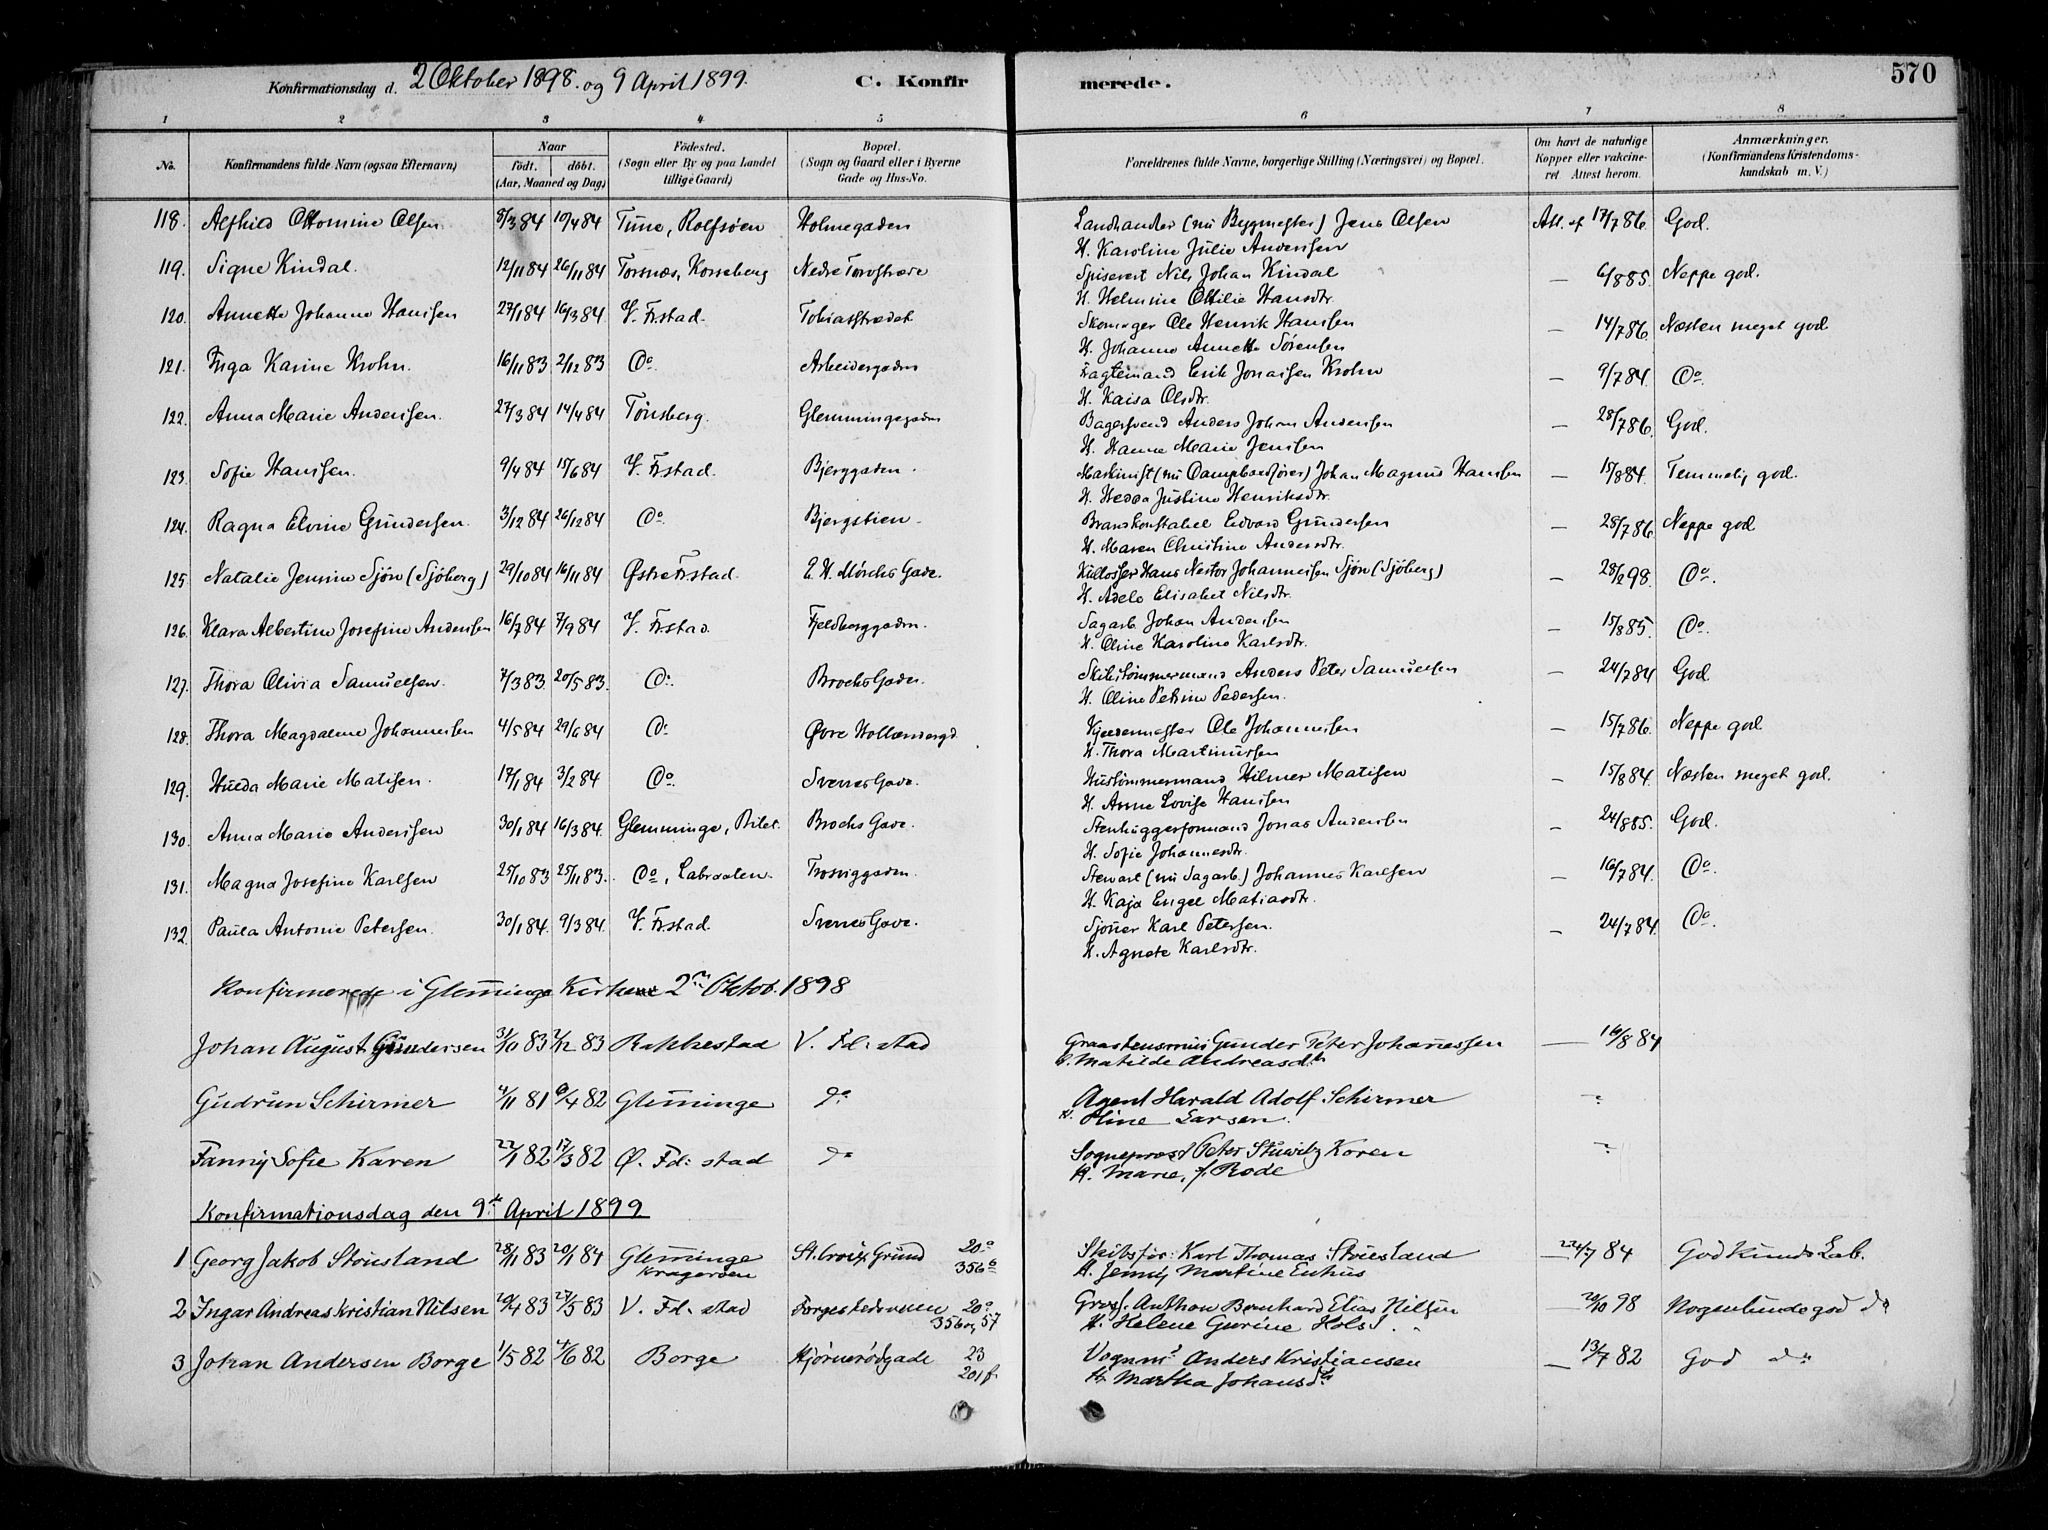 Konfirmationsdag d. 2 Oktober 1898. og 9 April 1899. C. Konfirmerede. 570
1 2 3 4 5 6 7 8
No. Konfirmandens fulde Navn (ogsaa Efternavn) Naar født. døbt. (Aar, Maaned og Dag) Fødested. (Sogn eller By og paa Landet tillige Gaard) Bopæl. (Sogn og Gaard eller i Byerne Gade og Hus-No. Forældrenes fulde Navne, borgerlige Stilling (Næringsvei) og Bopæl. Om havt de naturlige Kopper eller vakcineret Attest herom. Anmærkninger. (Konfirmandens Kristendomskundskab m. V.)
118. Alfhild Ottomine Olsen 8/3 84 10/4 84 Tune, Rolfsøen Holmegaden Landhandler (nu Bygmester) Jens Olsen Att. af 17/7 86. God.
H. Karoline Julie Andersen
119. Signe Kindal. 12/11 84 26/11 84 Torsnæs, Korseberg Nedre Torvstræde Spisevert Nils Johan Kindal — 6/8 85. Neppe god.
H. Helmine Otilie Hansdtr.
120. Annette Johanne Hansen 27/1 84 16/3 84. V. Frstad. Tobiasstrædet Skomager Ole Henrik Hansen — 14/7 86. Næsten meget god
H. Johanne Annette Sørensen
121. Inga Karine Krohn. 16/11 83 2/12 83 Do. Arbeidergaden Fragtemand Erik Jonassen Krohn — 9/7 84. Do.
H. Kaisa Olsdtr.
122. Anna Marie Andersen. 27/3 84 14/4 84 Tønsberg. Glemmingegaden Bagersvend Anders Johan Andersen — 28/7 86. God.
H. Hanna Marie Jensen
123. Sofie Hansen. 9/4 84 15/6 84 V. Frstad. Bjerggaden. Maskinist (nu Dampbaadfører) Johan Magnus Hansen — 15/8 84. Temmelig god.
H. Hedda Justine Henriksdtr.
124. Ragna Elvine Gundersen. 3/12 84 26/12 84 Do Bjergstien. Brandkonstabel Edvard Gundersen — 28/7 86 Neppe god
H. Maren Christine Andersdtr.
125. Natalie Jensine Sjøn (Sjöberg) 29/10 84 16/11 84 Østre Frstad. H. Mørchs Gade. Hans Nestor Johannesen Sjøn (Sjöberg) — 28/2 98. Do.
H. Adele Elisabet Nilsdtr.
126. Klara Albertine Josefine Andersen 16/7 84 7/9 84 V. Frstad. Fjeldberggaden. Sagarb. Johan Andersen — 15/8 85. Do.
H. Oline Karoline Karlsdtr.
127. Thora Olivia Samuelsen. 7/3 83. 20/5 83. Do. Brochs Gade. Skibstømmermand Anders Peter Samuelsen — 24/7 84 God
H. Oline Petrine Pedersen.
128. Thora Magdalene Johannesen 4/5 84 29/6 84 Do Øvre Hollændergd. Kjedemester Ole Johannesen — 15/7 86. Neppe god
H. Thora Martinussen
129. Hulda Marie Matisen. 17/1 84 3/2 84 Do. Svenes Gade. Hustømmermand Hilmer Matisen — 15/8 84 Næsten meget god.
H. Anne Lovise Hansen
130. Anna Marie Andersen 30/1 84 16/3 84. Glemminge, Bilet. Brochs Gade. Stenhuggerformand Jonas Andersen — 24/8 85. God.
H. Sofie Johannesdtr.
131. Magna Josefine Karlsen 25/10 83 25/11 83. Do, Labraaten. Trosviggaden. Stewart (nu Sagarb.) Johannes Karlsen — 16/7 84. Do.
H. Kaja Engel Matiasdtr.
132. Paula Antonie Petersen. 30/1 84. 9/3 84. V. Frstad. Svenes Gade. Sjømd. Karl Petersen. — 24/7 84 Do.
H. Agnete Karlsdtr.
Konfirmerede i Glemminge Kirke 2n Oktob. 1898
Johan August Gundersen 3/11 83 2/12 83 Rakkestad V. Fd:stad Gunder Peter Johanessen — 14/8 84
H. Matilde Andreasdtr
Gudrun Schirmer 4/11 81 9/4 82 Glemminge do Agent Harald Adolf Schirmer "
H. Stine Larsen.
Fanny Sofie Koren 22/1 82 17/3 82 Ø. Fd:stad do Sogneprest Peter Stuwitz Koren "
H. Marie, f. Rode
Konfirmationsdag den 9de April 1899.
1 Georg Jakob Stousland 28/11 83 20/1 84 Glemminge Kragerøen St. Croix Grund 20o 356 6 Skibsfør: Karl Thomas Stousland — 24/7 84 God Kundskab.
H. Jenny Martine
2 Ingar Andreas Kristian Nilsen 20/4 83 27/5 83 V. Fd:stad 20o 356 og 57 Gros. Anthon Bernhard Elias Nilsen 20/10 98 Nogenlunde god do
H. Helene Gurine Holst.
3 Johan Andersen Borge 1/5 82 4/6 82 Borge Hjørnerødgade 23 201 f. Vognmd Anders Kristiansen — 13/7 82 God do
H. Martha Johansdtr